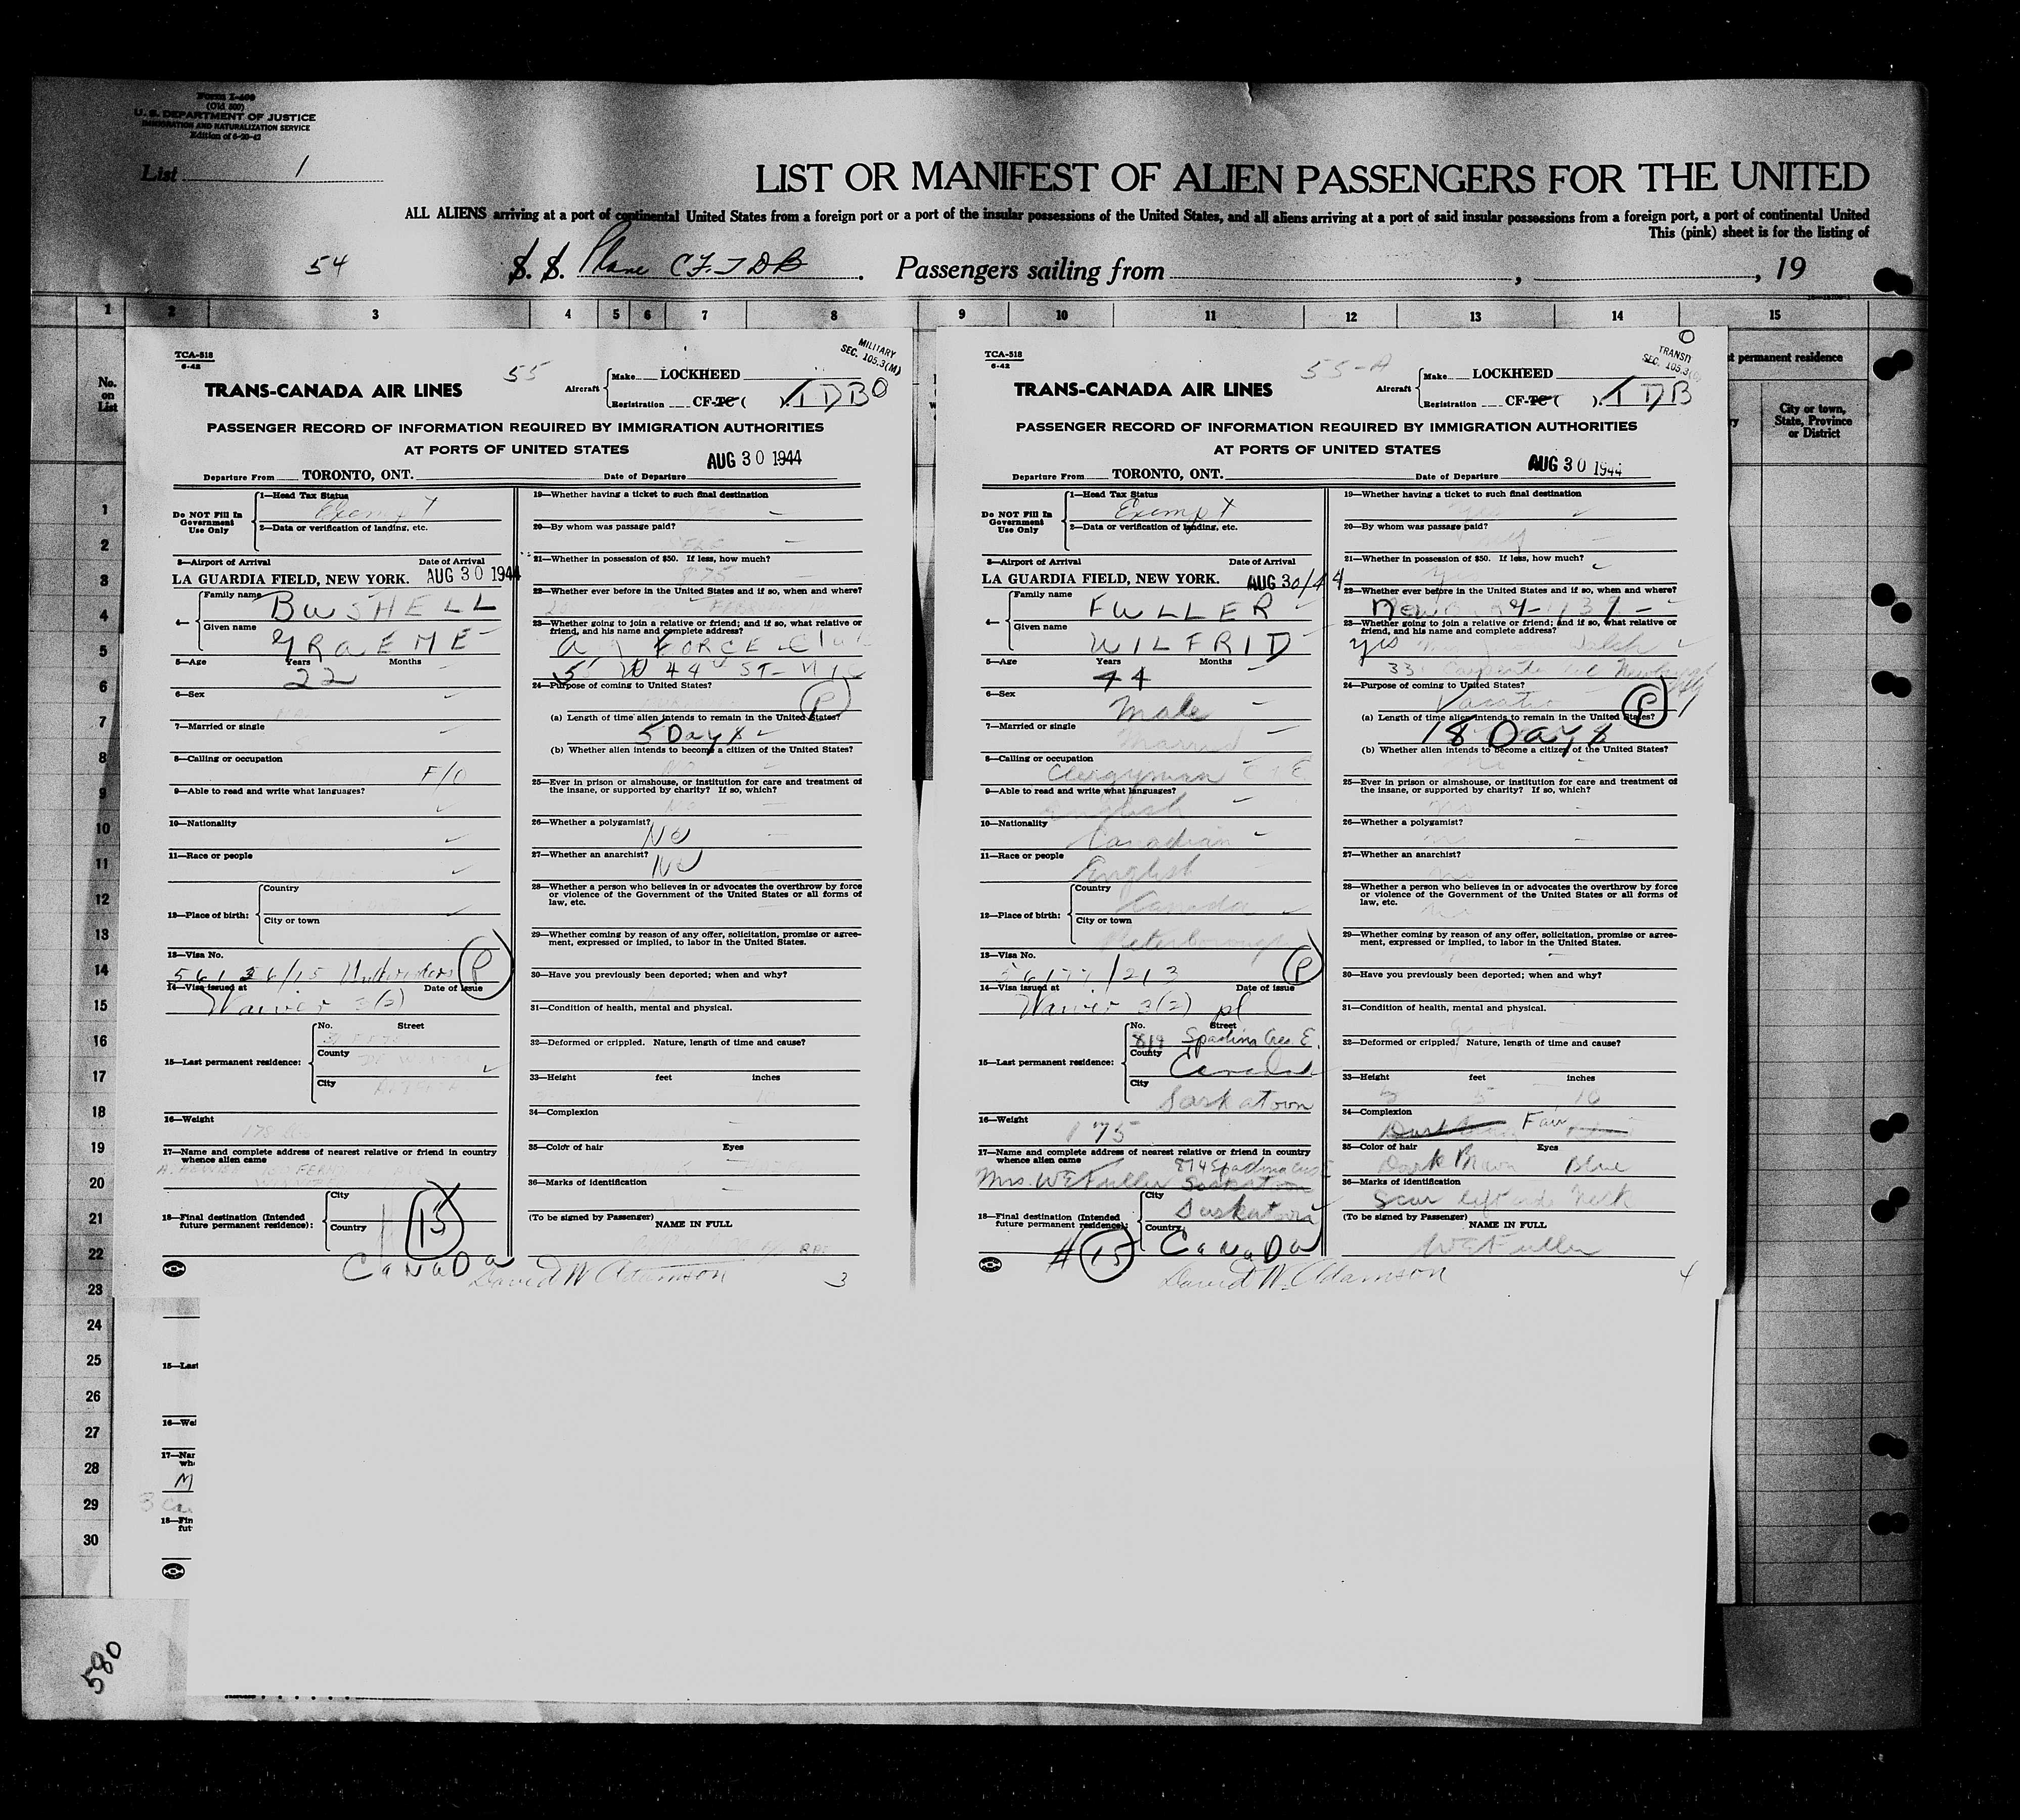 Form I-400
(Old 500)
U. S. DEPARTMENT OF JUSTICE
IMMIGRATION AND NATURALIZATION SERVICE
Edition of 6-20-42
List 1
LIST OR MANIFEST OF ALIEN PASSENGERS FOR THE UNITED
ALL ALIENS arriving at a port of continental United States from a foreign port or a port of the insular possessions of the United States, and all aliens arriving at a port of said insular possessions from a foreign port, a port of continental United
This (pink) sheet is for the listing of
54 S. S. Plane CF-TDB. Passengers sailing from , , 19
1 2 3 4 5 6 7 8 9 10 11 12 13 14 15
No. on List
t permanent residence
City or town, State, Province or District
1
2
3
4
5
6
7
8
9
10
11
12
13
14
15
16
17
18
19
20
21
22
23
24
25
26
27
28
29
30
TCA-518
6-42
55
MILITARY
SEC. 105.3(M)
TRANS-CANADA AIR LINES
Aircraft Make LOCKHEED
Registration CF-TC ( ). TDB
PASSENGER RECORD OF INFORMATION REQUIRED BY IMMIGRATION AUTHORITIES
AT PORTS OF UNITED STATES
Departure From TORONTO, ONT. Date of Departure AUG 30 1944
Do NOT Fill In Government Use Only
1—Head Tax Status Exempt
2—Data or verification of landing, etc.
3—Airport of Arrival Date of Arrival
LA GUARDIA FIELD, NEW YORK. AUG 30 1944
4— Family name BUSHELL
Given name GRAEME
5—Age Years Months
22
6—Sex
7—Married or single
8—Calling or occupation
F/O
9—Able to read and write what languages?
10—Nationality
11—Race or people
12—Place of birth: Country
City or town
13—Visa No.
P
14—Visa issued at Date of issue
Waiver 3(2)
15—Last permanent residence: No. Street
County
City
16—Weight
17—Name and complete address of nearest relative or friend in country whence alien came
18—Final destination (Intended future permanent residence): City
Country
15
CANADA
David W. Adamson
19—Whether having a ticket to such final destination
20—By whom was passage paid?
21—Whether in possession of $50. If less, how much?
22—Whether ever before in the United States and if so, when and where?
23—Whether going to join a relative or friend; and if so, what relative or friend, and his name and complete address?
FORCE Club
44 ST-
24—Purpose of coming to United States?
P
(a) Length of time alien intends to remain in the United States?
5 Days
(b) Whether alien intends to become a citizen of the United States?
25—Ever in prison or almshouse, or institution for care and treatment of the insane, or supported by charity? If so, which?
26—Whether a polygamist?
No
27—Whether an anarchist?
No
28—Whether a person who believes in or advocates the overthrow by force or violence of the Government of the United States or all forms of law, etc.
29—Whether coming by reason of any offer, solicitation, promise or agreement, expressed or implied, to labor in the United States.
30—Have you previously been deported; when and why?
31—Condition of health, mental and physical.
32—Deformed or crippled. Nature, length of time and cause?
33—Height feet inches
34—Complexion
35—Color of hair Eyes
36—Marks of identification
(To be signed by Passenger)
NAME IN FULL
3
TCA-518
6-42
55-A
TRANSIT
SEC. 105.3
TRANS-CANADA AIR LINES
Aircraft Make LOCKHEED
Registration CF-TC ( ). TDB
PASSENGER RECORD OF INFORMATION REQUIRED BY IMMIGRATION AUTHORITIES
AT PORTS OF UNITED STATES
Departure From TORONTO, ONT. Date of Departure AUG 30 1944
Do NOT Fill In Government Use Only
1—Head Tax Status Exempt
2—Data or verification of landing, etc.
3—Airport of Arrival Date of Arrival
LA GUARDIA FIELD, NEW YORK. AUG 30/44
4— Family name FULLER
Given name WILFRID
5—Age Years Months
44
6—Sex
Male
7—Married or single
Married
8—Calling or occupation
Clergyman
9—Able to read and write what languages?
English
10—Nationality
Canadian
11—Race or people
English
12—Place of birth: Country
Canada
City or town
Peterborough
13—Visa No.
P
14—Visa issued at Date of issue
Waiver 3(2)
15—Last permanent residence: No. Street
814 Spadina Cres. E.
County
Canada
City
Saskatoon
16—Weight
175
17—Name and complete address of nearest relative or friend in country whence alien came
Mrs. W E Fuller 814 Spadina Cres E
Saskatoon
18—Final destination (Intended future permanent residence): City
Saskatoon
Country
# 15 CANADA
David W. Adamson
19—Whether having a ticket to such final destination
20—By whom was passage paid?
21—Whether in possession of $50. If less, how much?
22—Whether ever before in the United States and if so, when and where?
23—Whether going to join a relative or friend; and if so, what relative or friend, and his name and complete address?
yes
24—Purpose of coming to United States?
P
(a) Length of time alien intends to remain in the United States?
18 Days
(b) Whether alien intends to become a citizen of the United States?
25—Ever in prison or almshouse, or institution for care and treatment of the insane, or supported by charity? If so, which?
26—Whether a polygamist?
27—Whether an anarchist?
28—Whether a person who believes in or advocates the overthrow by force or violence of the Government of the United States or all forms of law, etc.
29—Whether coming by reason of any offer, solicitation, promise or agreement, expressed or implied, to labor in the United States.
30—Have you previously been deported; when and why?
31—Condition of health, mental and physical.
32—Deformed or crippled. Nature, length of time and cause?
33—Height feet inches
5 10
34—Complexion
Fair
35—Color of hair Eyes
Dark Brown Blue
36—Marks of identification
Scar left side Neck
(To be signed by Passenger)
NAME IN FULL
W E Fuller
4
15—Last
16—Wei
17—Nar
wh
M
18—Fin
fut
580